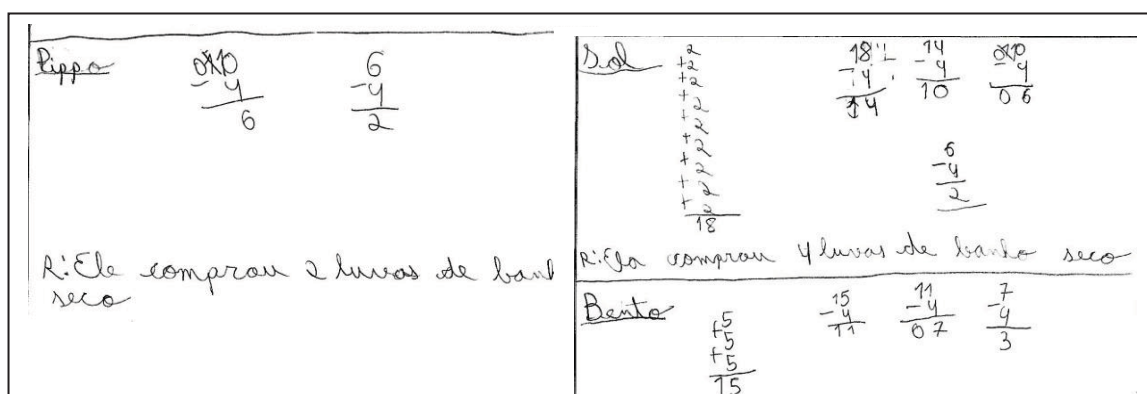 Pippo
010 6
- 4 - 4
6 2
R: Ele comprou 2 luvas de banh
seco
Sol
2
+2
+2
+2
+2
+2
+2
+2
+2
18
18 14 010
- 4 - 4 - 4
14 10 06
6
- 4
2
R: Ela comprou 4 luvas de banho seco
Bento
5
+5
+5
15
15 11 7
- 4 - 4 - 4
11 07 3